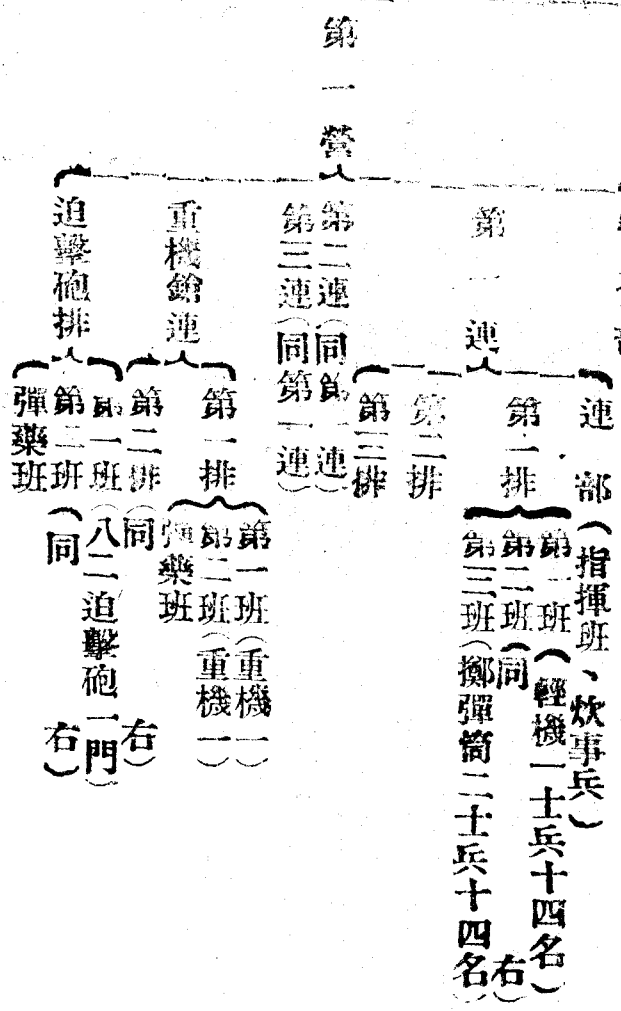 第一營
第一連
連部（指揮班、炊事兵）
第一排
第一班（輕機一士兵十四名）
第二班（同右）
第三班（擲彈筒二士兵十四名）
第二排
第三排
第二連（同第一連）
第三連（同第一連）
重機鎗連
第一排
第一班（重機一）
第二班（重機一）
彈藥班
第二排（同右）
迫擊砲排
第一班（八二迫擊砲一門）
第二班（同右）
彈藥班